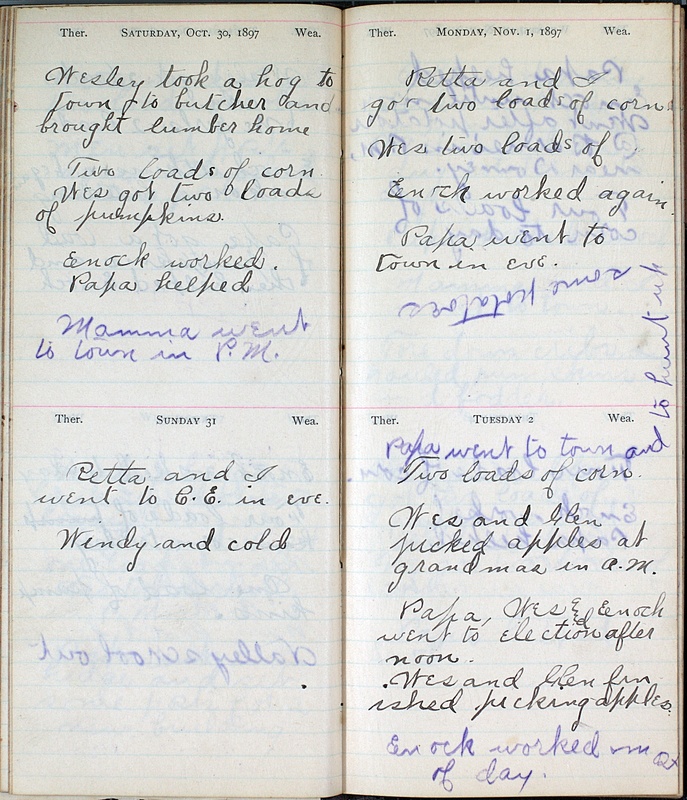 Ther. SATURDAY, OCT. 30, 1897 Wea.
Wesley took a hog to
town to butcher and
brought lumber home
Two loads of corn.
Wes got two loads
of pumpkins.
Enock worked.
Papa helped
Mamma went
to town in P.M.
Ther. SUNDAY 31 Wea.
Retta and I
went to C.E. in eve.
Windy and cold
Ther. MONDAY, NOV. 1, 1897 Wea.
Retta and I
got two loads of corn.
Wes two loads of .
Enock worked again.
Papa went to
town in eve.
Ther. TUESDAY 2 Wea.
Papa went to town and
to hunt up
some potatoes
Two loads of corn.
Wes and Glen
picked apples at
grandmas in A.M.
Papa, Wes & Enoch
went to election after
noon.
Wes and Glen fin
ished picking apples.
Enock worked
of day.